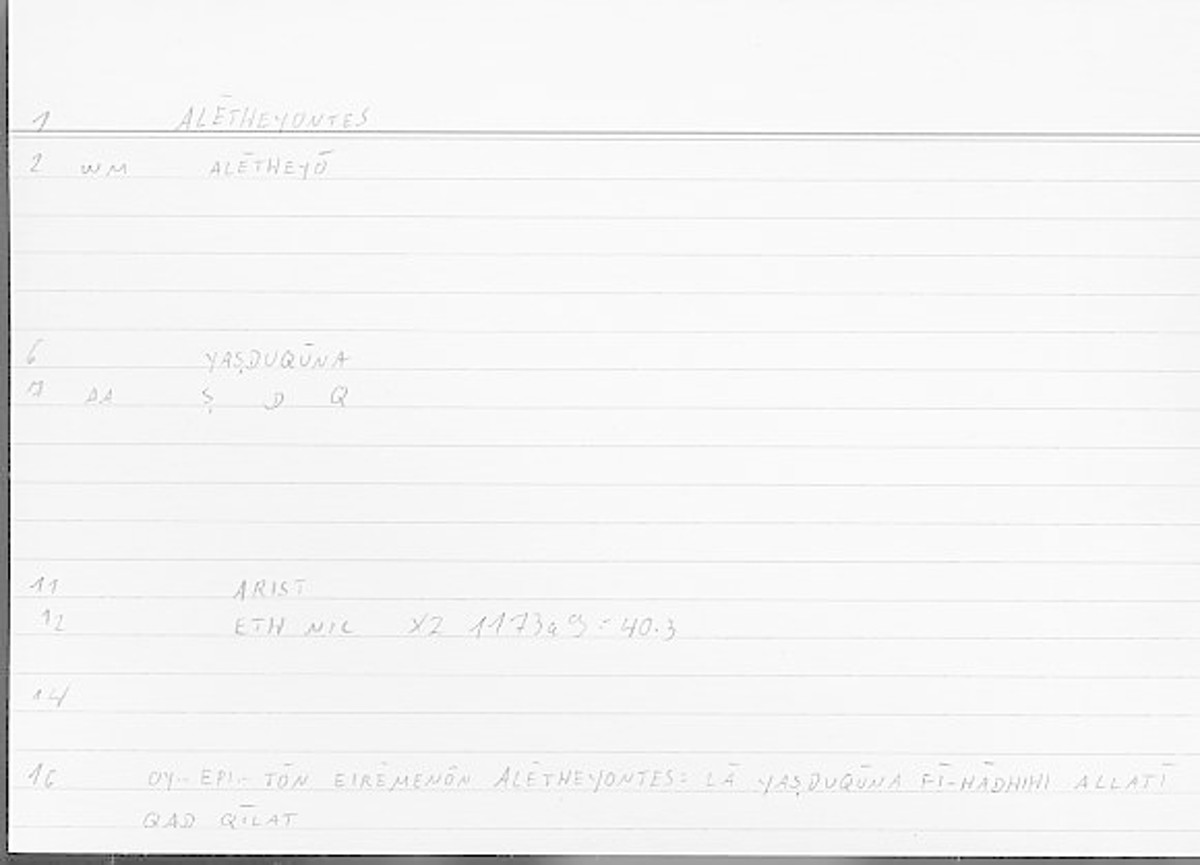 1 ALĒTHEYONTES
2 WM ALĒTHEYŌ
6 YAṢDUQŪNA
7 AA Ṣ D Q
11 ARIST
12 ETH NIC X2 1173a9 = 40.3
14
16 OY-- EPI-- TŌN EIRĒMENŌN ALĒTHEYONTES: LĀ YAṢDUQŪNA FĪ-HĀDHIHI ALLATĪ
QAD QĪLAT